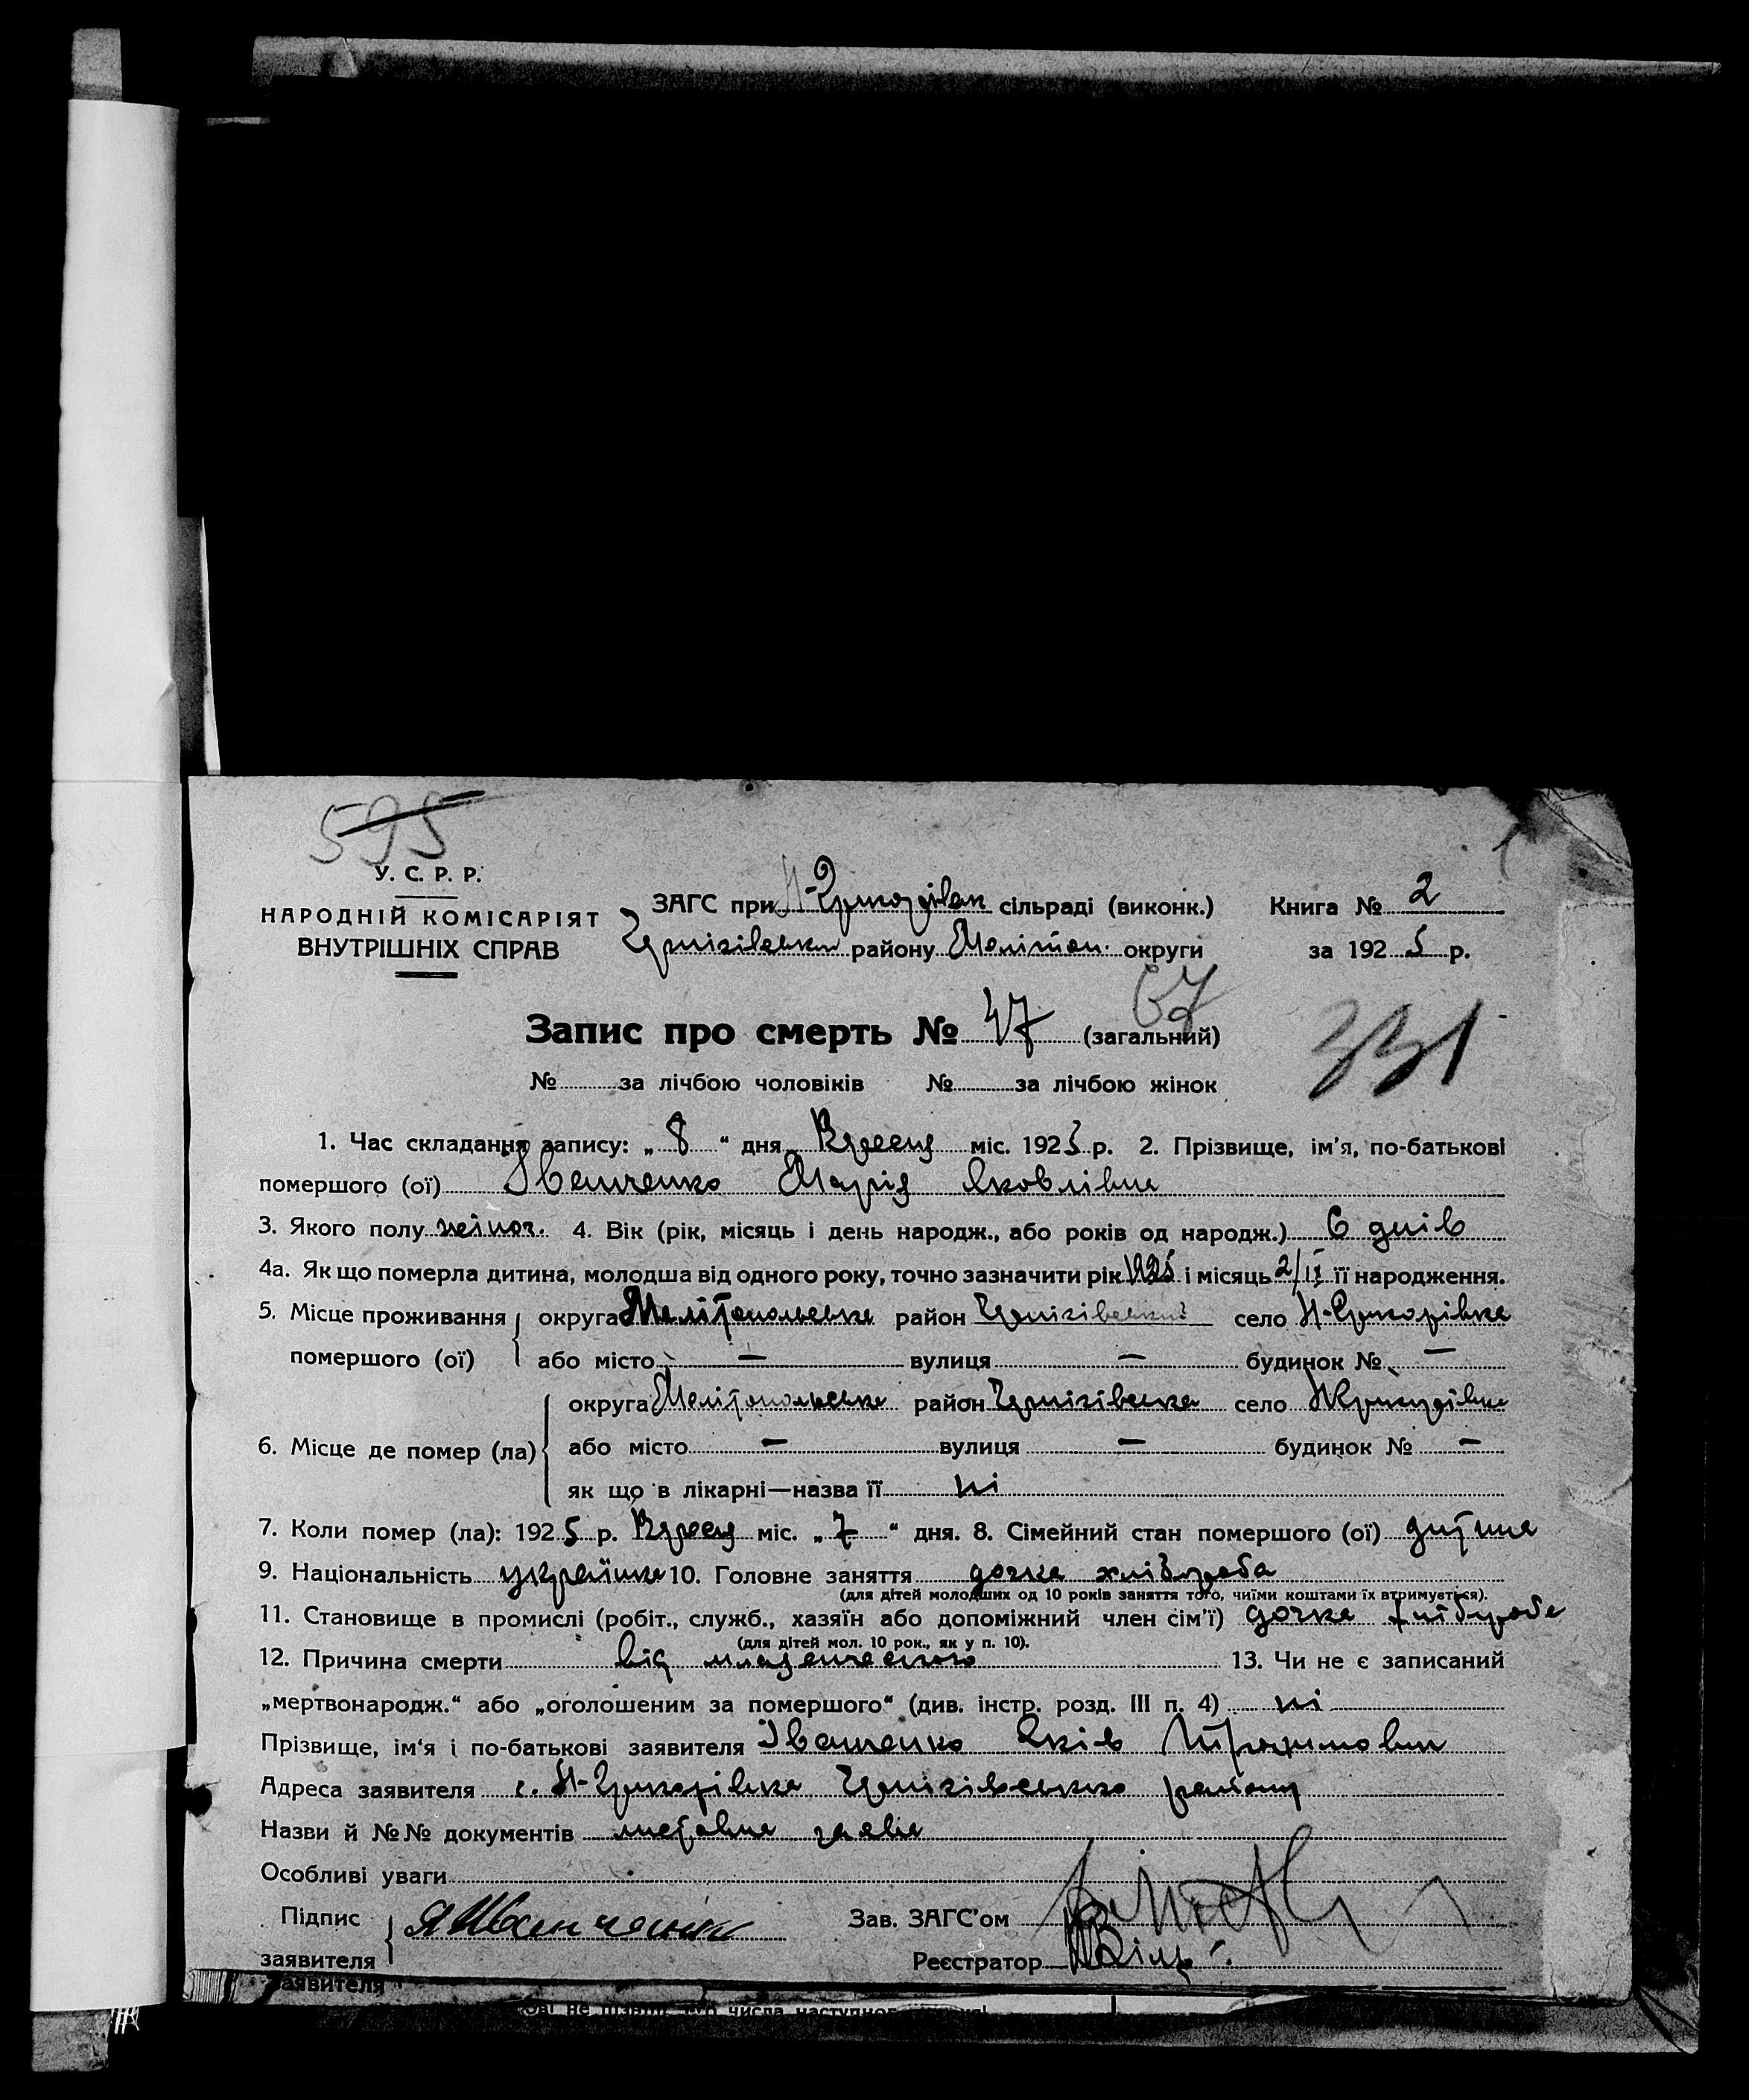 595
У. С. Р. Р.
НАРОДНІЙ КОМІСАРІЯТ
ВНУТРІШНІХ СПРАВ
ЗАГС при сільраді (виконк.) Книга № 2
району Меліτοп. округи за 1925 р.
67
Запис про смерть № 47 (загальний)
331
№ за лічбою чоловіків № за лічбою жінок
1. Час складання запису: „ 8 “ дня міс. 1925 р. 2. Прізвище, ім'я, по-батькові
померлого (ої) Іванченко Марія Яковлівна
3. Якого полу жіноч. 4. Вік (рік, місяць і день народж., або років од народж.) 6 днів
4а. Як що померла дитина, молодша від одного року, точно зазначити рік 1925 і місяць 2/ІХ її народження.
5. Місце проживання округа Мелітопольська район Чернігівський село Н-Григорівка
помершого (ої) або місто — вулиця — будинок № —
округа Мелітопольська район Чернігівська село Н Григорівка
6. Місце де помер (ла) або місто — вулиця — будинок № —
як що в лікарні—назва її ні
7. Коли помер (ла): 1925 р. міс. „ 7 “ дня. 8. Сімейний стан помершого (ої) дитина
9. Національність українка 10. Головне заняття дочка хлібороба
(для дітей молодших од 10 років заняття того, чиїми коштами їх втримується).
11. Становище в промислі (робіт., служб., хазяїн або допоміжний член сім'ї) дочка хлібороба
(для дітей мол. 10 рок., як у п. 10).
12. Причина смерти від младенческого 13. Чи не є записаний
„мертвонародж.“ або „оголошеним за помершого“ (див. інстр. розд. III п. 4) ні
Прізвище, ім'я і по-батькові заявителя Іванченко Яків
Адреса заявителя с. Н-Григорівка Чернігівсько району
Назви й №№ документів заява
Особливі уваги
Підпис Я Иванченко Зав. ЗАГС'ом
заявителя Реєстратор
заявителя